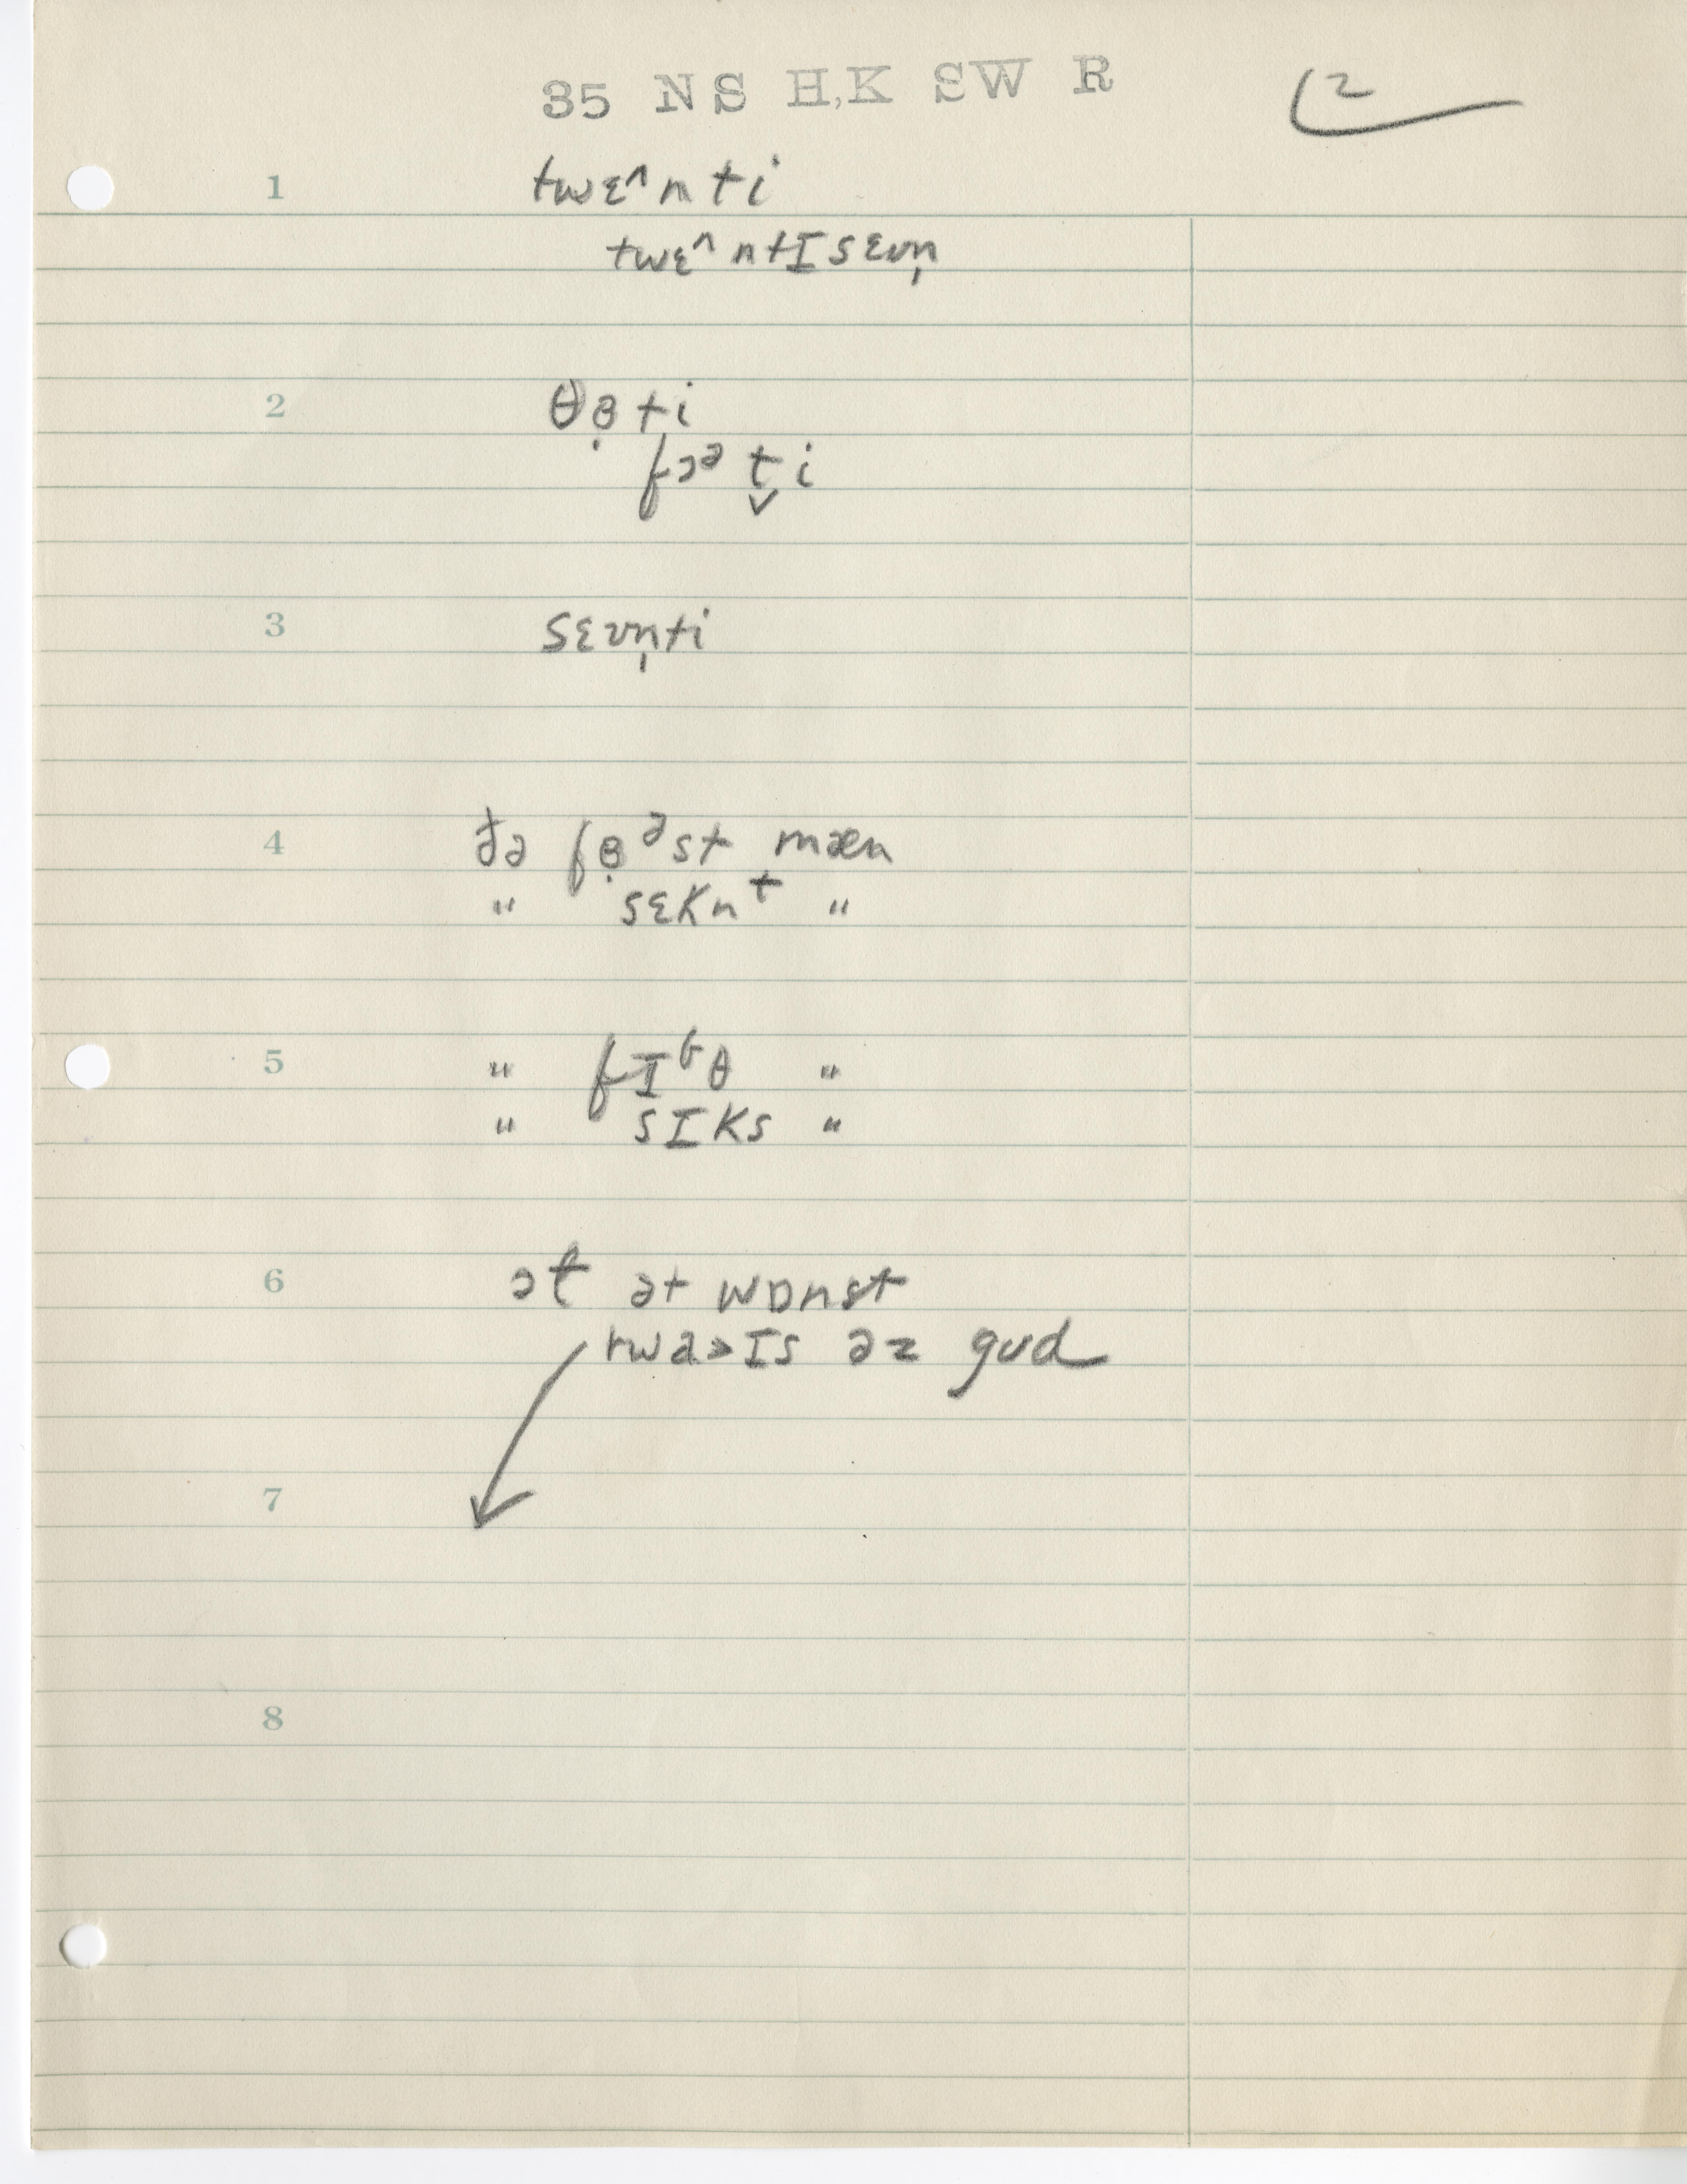 35 NS H,K SW R
2
1 twɛ^nti
twɛ^ntɪsɛvn̩
2 θɵ̣ti
fɔᵊt̬i
3 sɛvn̩ti
4 ðə fɵ̣ᵊst mæn
" sɛknᵗ "
5 " fɪᶠθ "
" sɪks "
6 ət ət wɒnst
twa>ɪs əz gʊd
7
8